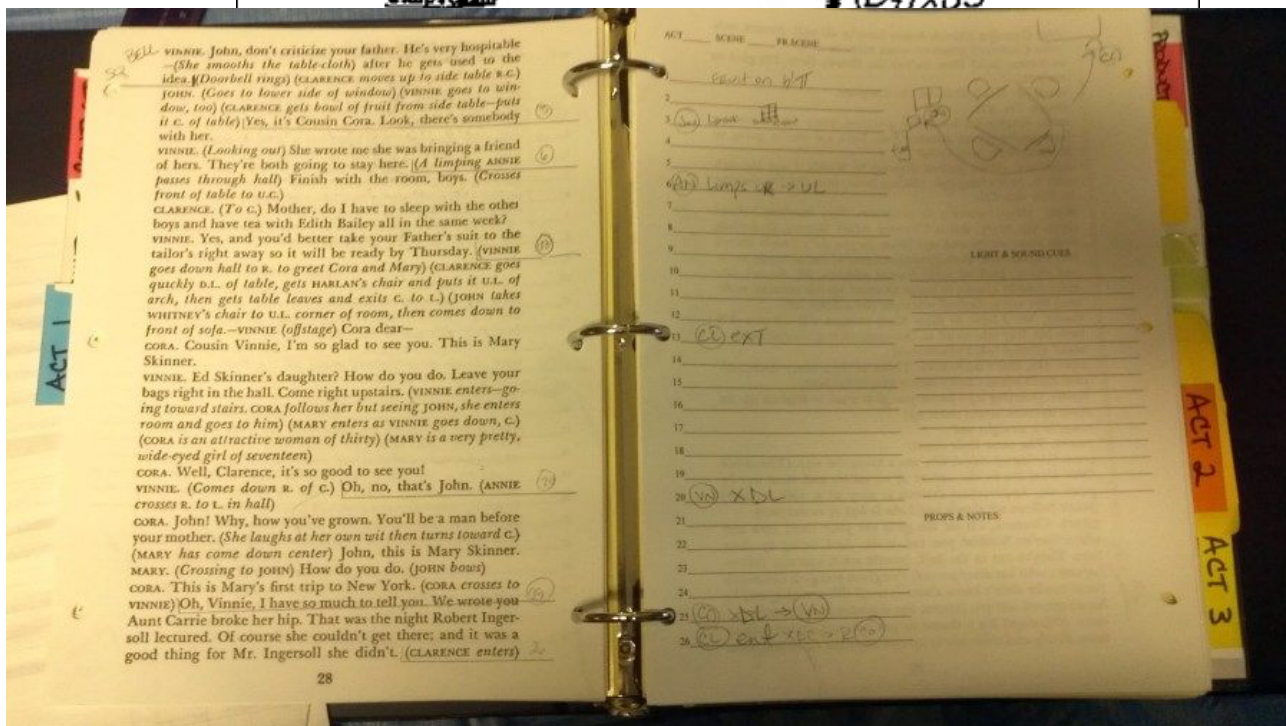 BELL
VINNIE. John, don't criticize your father. He's very hospitable
—(She smooths the table-cloth) after he gets used to the
idea. (Doorbell rings) (CLARENCE moves up to side table R.C.)
JOHN. (Goes to lower side of window) (VINNIE goes to win-
dow, too) (CLARENCE gets bowl of fruit from side table—puts
it C. of table) Yes, it's Cousin Cora. Look, there's somebody
with her.
VINNIE. (Looking out) She wrote me she was bringing a friend
of hers. They're both going to stay here. (A limping ANNIE
passes through hall) Finish with the room, boys. (Crosses
front of table to U.C.)
CLARENCE. (To C.) Mother, do I have to sleep with the other
boys and have tea with Edith Bailey all in the same week?
VINNIE. Yes, and you'd better take your Father's suit to the
tailor's right away so it will be ready by Thursday. (VINNIE
goes down hall to R. to greet Cora and Mary) (CLARENCE goes
quickly D.L. of table, gets HARLAN'S chair and puts it U.L. of
arch, then gets table leaves and exits C. to L.) (JOHN takes
WHITNEY'S chair to U.L. corner of room, then comes down to
front of sofa.—VINNIE (offstage) Cora dear—
CORA. Cousin Vinnie, I'm so glad to see you. This is Mary
Skinner.
VINNIE. Ed Skinner's daughter? How do you do. Leave your
bags right in the hall. Come right upstairs. (VINNIE enters—go-
ing toward stairs. CORA follows her but seeing JOHN, she enters
room and goes to him) (MARY enters as VINNIE goes down, C.)
(CORA is an attractive woman of thirty) (MARY is a very pretty,
wide-eyed girl of seventeen)
CORA. Well, Clarence, it's so good to see you!
VINNIE. (Comes down R. of C.) Oh, no, that's John. (ANNIE
crosses R. to L. in hall)
CORA. John! Why, how you've grown. You'll be a man before
your mother. (She laughs at her own wit then turns toward C.)
(MARY has come down center) John, this is Mary Skinner.
MARY. (Crossing to JOHN) How do you do. (JOHN bows)
CORA. This is Mary's first trip to New York. (CORA crosses to
VINNIE) Oh, Vinnie, I have so much to tell you. We wrote you
Aunt Carrie broke her hip. That was the night Robert Inger-
soll lectured. Of course she couldn't get there; and it was a
good thing for Mr. Ingersoll she didn't. (CLARENCE enters)
28
ACT 1
ACT SCENE FR.SCENE
1
2
3
4
5
6 limps UR → UL
7
8
9
10
11
12
13 CL exT
14
15
16
17
18
19
20 VN XDL
21
22
23
24
25 CO XDL → VN
26 CL ent
LIGHT & SOUND CUES
PROPS & NOTES:
ACT 2
ACT 3